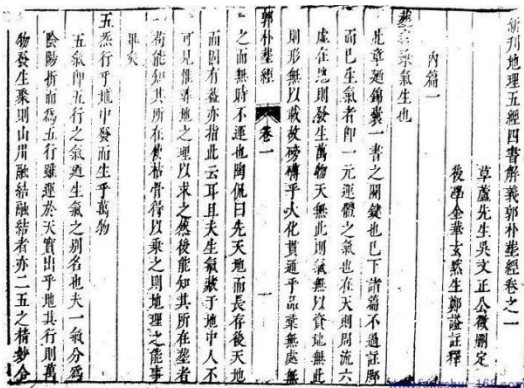 新刊地理五經四書解義郭朴葬經卷之一
草廬先生吳文正公徵刪定
後學金華玄默生鄭謐註釋
內篇一
葬者乘氣生也
此章迺錦囊一書之關鍵也已下諸篇不過註腳
而巳生氣者即一元運體之氣也在天則周流六
虛在地則發生萬物天無此則氣無以資地無此
則形無以載故磅礴乎大化貫通乎品彙無處無
郭朴葬經
卷一
一
之而無時不運也陶侃曰先天地而長存後天地
而固有葢亦指此云耳且夫生氣藏于地中人不
可見惟尋地之理以求之然後能知其所在葬者
苟能知其所在使枯骨得以乘之則地理之能事
畢矣
五炁行乎地中發而生乎萬物
五氣即五行之氣迺生氣之別名也夫一氣分爲
陰陽析而爲五行雖運於天實出乎地其行則萬
物發生聚則山川融結融結者亦二五之精妙合